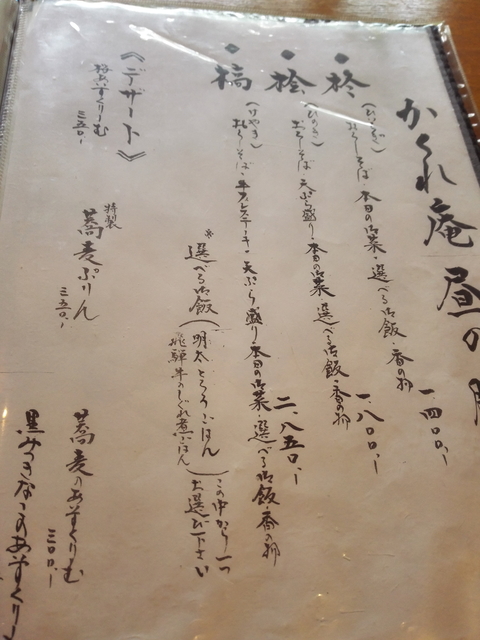 かくれ庵 昼の
・柊
(ひいらぎ)
おろしそば・本日の御菜・選べる御飯・香の物
一、四〇〇、-
・桧
(ひのき)
おろしそば・天ぷら盛り・本日の御菜・選べる御飯・香の物
一、八〇〇、-
(けやき)
おろしそば・牛カルビステーキ・天ぷら盛り・本日の御菜・選べる御飯・香の物
二、八五〇、-
※選べる御飯
明太とろろごはん
飛騨牛のしぐれ煮ごはん
この中から一つ
お選び下さい
《デザート》
三五〇、-
特製
蕎麦ぷりん
三五〇、-
蕎麦のあいすくりむ
三〇〇、-
黒みつきなこのあいすくり